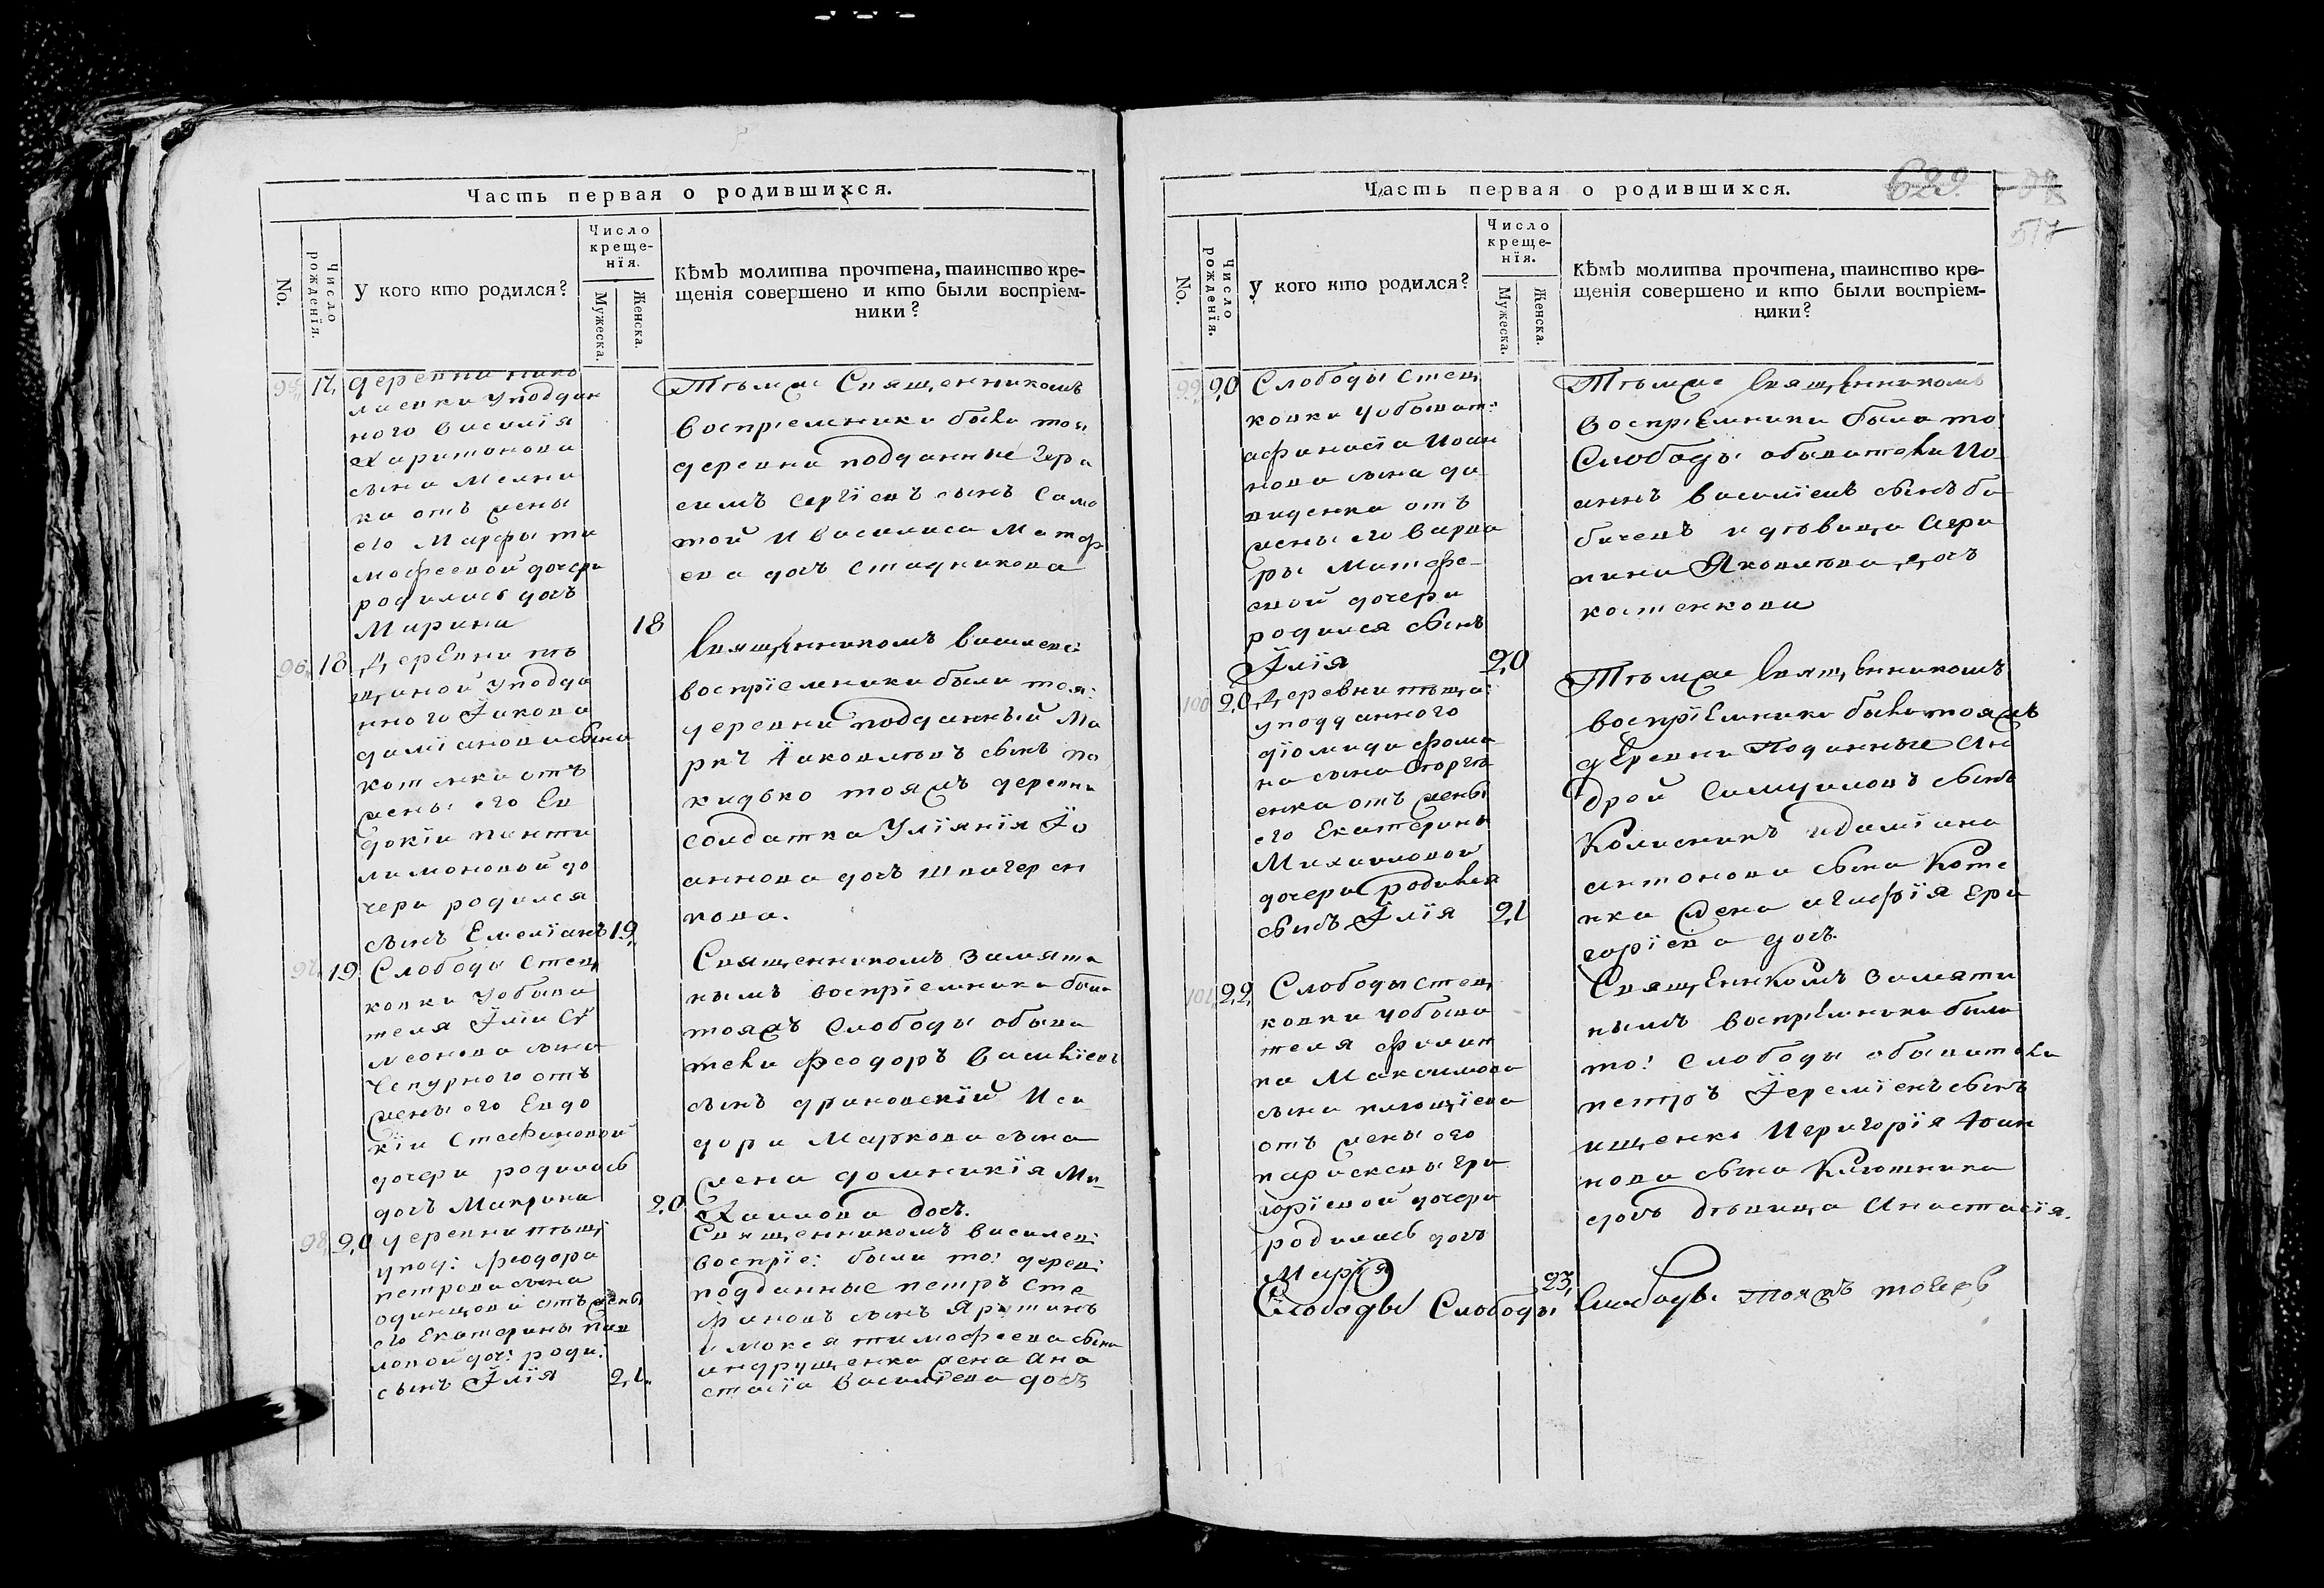 Часть первая о родившихся.
No.
Число рожденїя.
У кого кто родился?
Число
креще-
нїя.
Мужеска.
Женска.
Кѣмъ молитва прочтена, таинство кре-
щенїя совершено и кто были воспрїем-
ники?
95. 17. деревни нико
лаевки уподдан
ного василїя
Харитонова
сына мелни
ка отъ жены
его Марфы ти
мофеевой дочери
родилась дочь
Марина 18
Тѣмже Священникомъ
воспрїемники были тоя
деревни подданные Гера
симъ Сергїевъ сынъ Само
той и василиса Матф
еева дочь стадникова
96. 18 Деревни тѣ
щиной уподда
нного Їакова
дамїанова сына
котенка отъ
жены его Ев
докїи панти
лимоновой до
чери родился
сынъ Емелїанъ 19.
Священникомъ василев:
воспрїемники были тоя:
деревни подданный Ма
ркъ Їаковлевъ сынъ по
кидько тояжъ деревни
солдатка Улїянїя Їо
аннова дочь швачерен
кова.
97. 19. Слободы стец
ковки уобыва
теля Їлїи Си
меонова сына
Чепурного отъ
жены его Евдо
кїи Стефановой
дочери родилась
дочь Макрина 20
Священникомъ замята
нымъ воспрїемники были
тояжъ Слободы обыва
тели феодоръ василїевъ
сынъ драновскїй Иси
дора Маркова сына
жена домникїя Ми
Хаилова дочь.
98. 20 деревни тѣщ:
упод: феодора
петрова сына
одинцова отъ жены
его Екатерины пав
ловой доч: роди:
сынъ Їлїя 21.
Священникомъ василев:
воспрїе: были то: дерев:
подданные петръ сте
фановъ сынъ Яротинъ
и мокея тимофеева сына
андрущенка жена ана
стасїа василїева дочь
Часть первая о родившихся.
629.
517
No.
Число рожденїя.
У кого кто родился?
Число
креще-
нїя.
Мужеска.
Женска.
Кѣмъ молитва прочтена, таинство кре-
щенїя совершено и кто были воспрїем-
ники?
99. 20 Слободы стец
ковки уобыват:
афанасїа Иоан
нова сына да
виденка отъ
жены его варва
ры Матфе
евой дочери
родился сынъ
Їлїя 20
Тѣмже Священникомъ
воспрїемники были то
Слободы обыватели Ио
аннъ василїевъ сынъ ба
бичевъ и дѣвица Агри
пина Яковлева дочь
костенкова
100 20 Деревни тѣща:
уподданного
дїомида фоми
на сына Сторгѣ
енка отъ жены
его Екатерины
Михаиловой
дочери родился
сынъ Їлїя 21
Тѣмже Священникомъ
воспрїемники были тояжъ
деревни Поданные Ан
дрей Самуиловъ сынъ
Колисникъ и дамїана
антонова сына Коте
нка жена агафїя Гри
горїева дочь.
101. 22. Слободы стец
ковки уобыва
теля филип
па Максимова
сына клющїева
отъ жены его
параскевы гри
горїевой дочери
родилась дочь
Марїя 23.
Священникомъ замяти
нымъ воспрїемники были
то: слободы обыватели
петръ Їеремїевъ сынъ
ищенко Игригорїя Їоан
нова сына Ключника
дочь дѣвица Анастасїя.
Слободы Слободы Слободы тояжъ